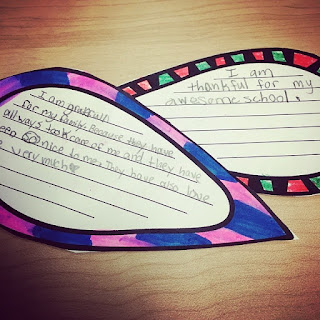 I am
for my family Because they have
allways took care of me and they have
een so nice to me, They have also love
e very much♥
I am
thankful for my
awesome school.